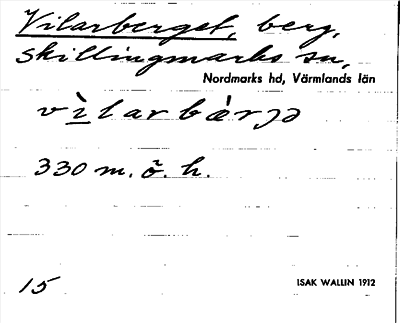 Vilarberget, berg,
Skillingmarks sn,
Nordmarks hd, Värmlands län
vìlarbæ̀rjə
330 m. ö. h.
15 ISAK WALLIN 1912